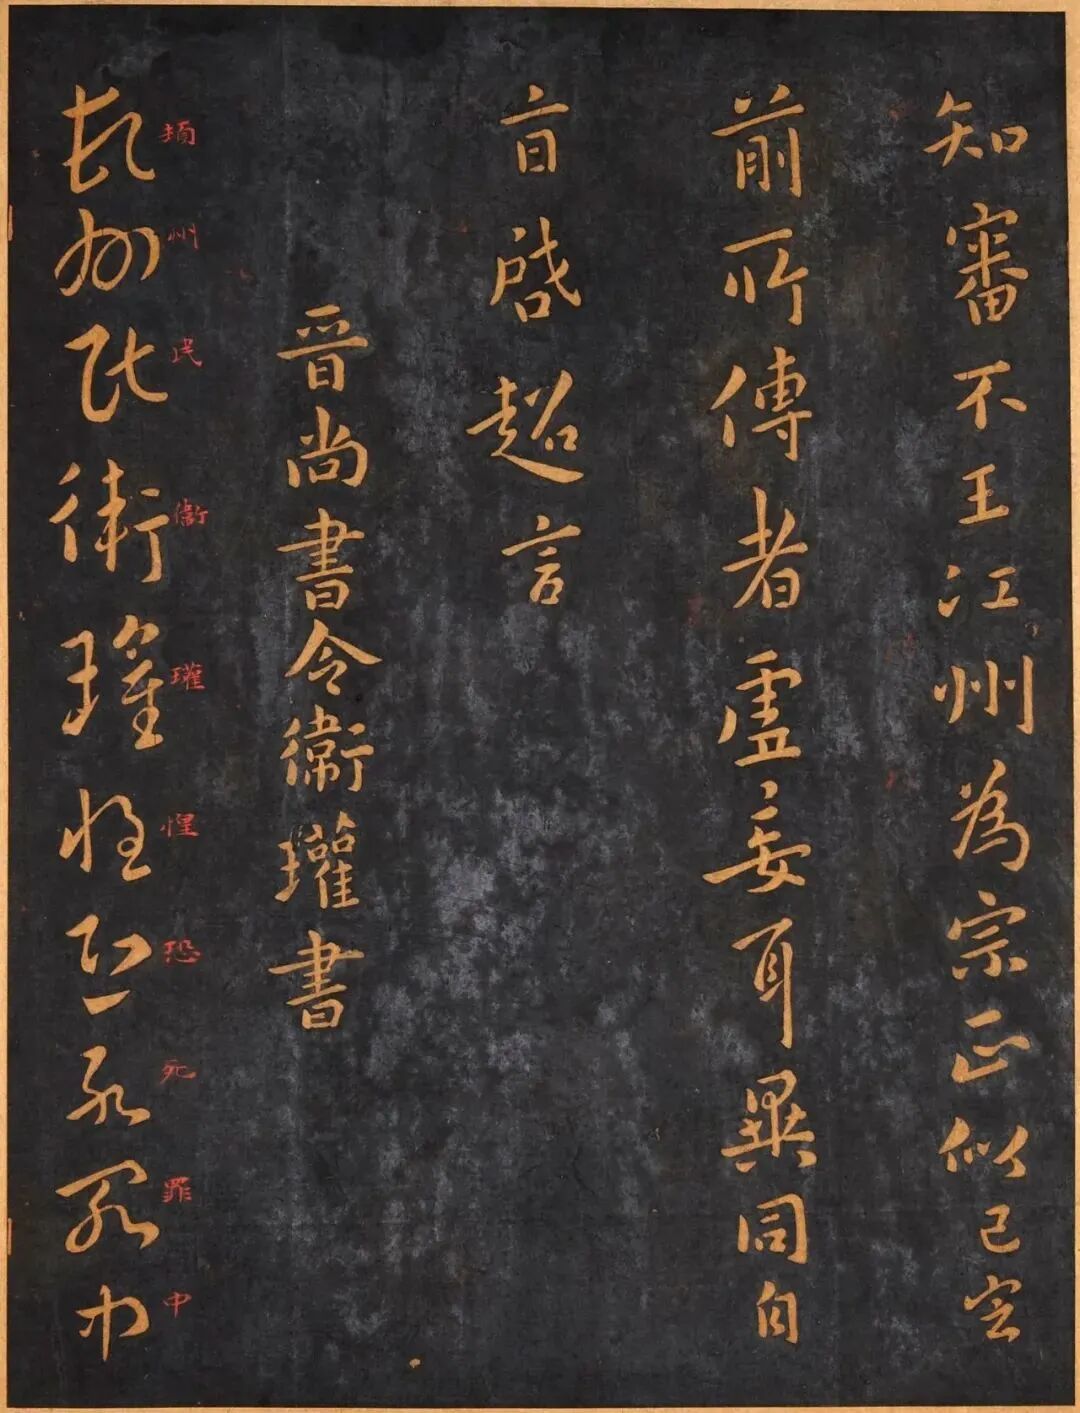 知審不王江州為宗正似已定
前所傳者虛妄耳異同自
啓超言
晉尚書令衛瓘書
頓州民衛瓘惶恐死罪中
頓州民衛瓘惶恐死罪中